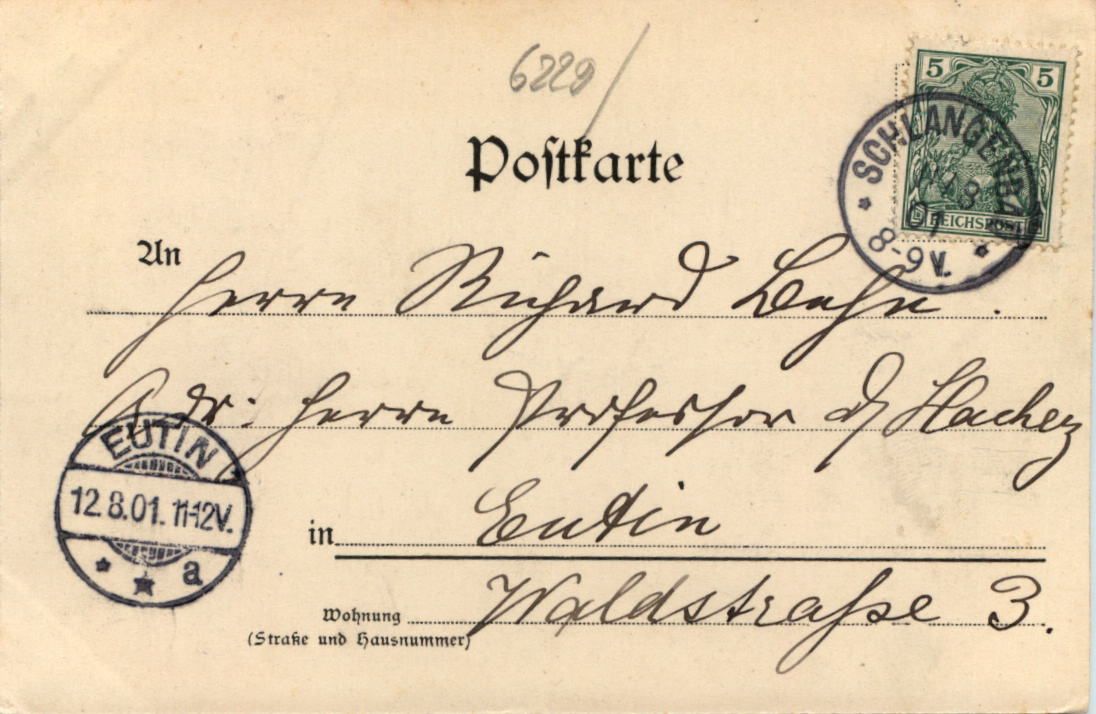 6229
Postkarte
5 5
REICHSPOST
SCHLANGENBA
8.
01
8-9 V.
An
Herrn Richard Behn.
Adr: Herrn Professor Hachez
EUTIN
12.8.01. 11-12V.
a
in Eutin
Wohnung Waldstraße 3.
(Straße und Hausnummer)